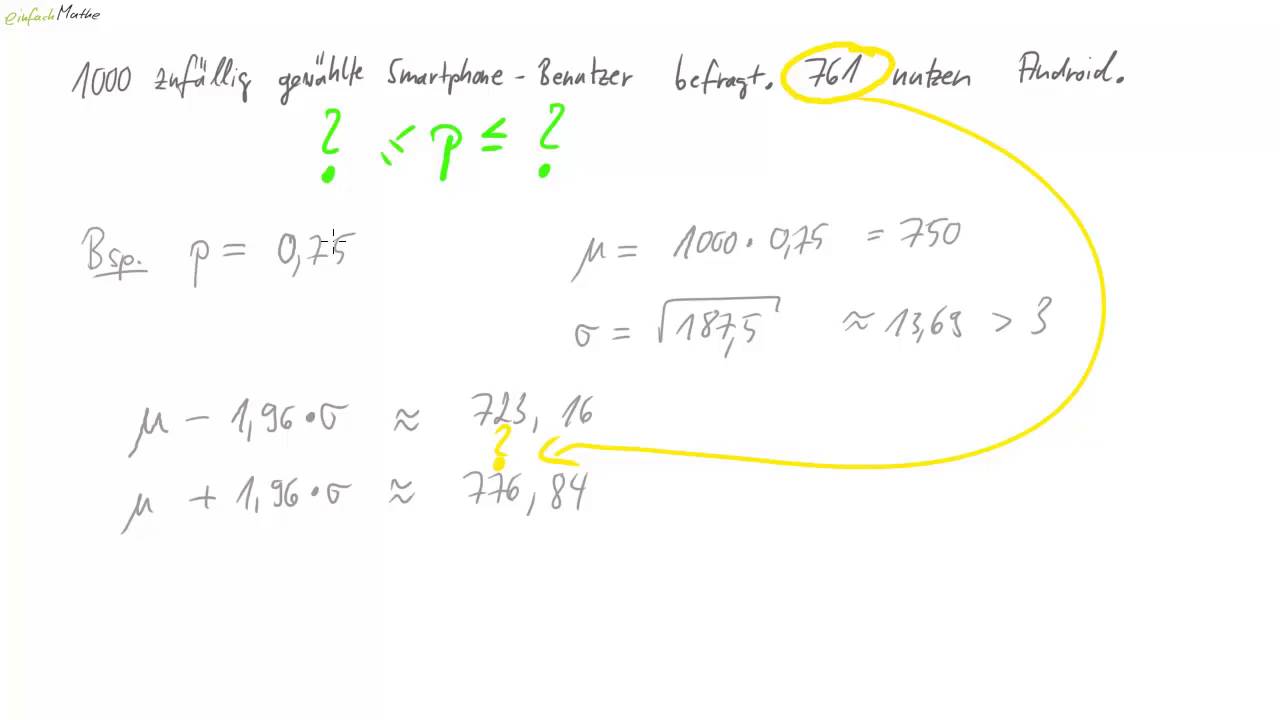 einfachMathe
1000 zufällig gewählte Smartphone-Benutzer befragt. 761 nutzen Android.
? ≤ p ≤ ?
Bsp. p = 0,75
μ = 1000 · 0,75 = 750
σ = √187,5 ≈ 13,69 > 3
μ - 1,96 · σ ≈ 723,16
?
μ + 1,96 · σ ≈ 776,84